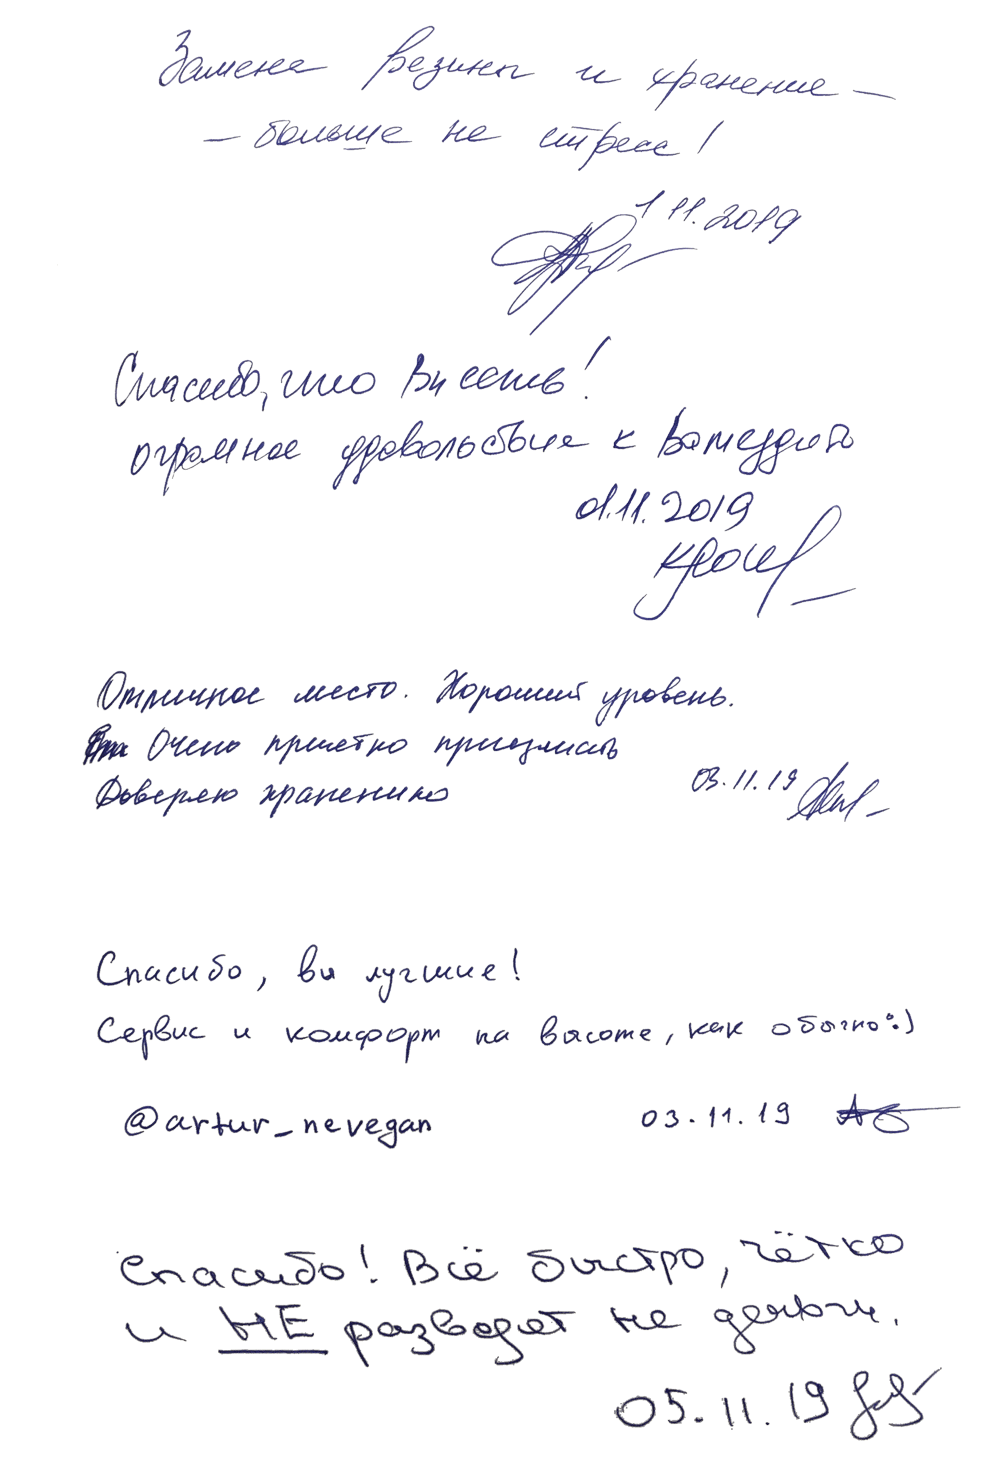 Замена резины и хранение –
– больше не стресс!
1 11.2019
Спасибо, что Вы есть!
огромное удовольствие к Вам ездить
01.11.2019
Отличное место. Хороший уровень.
Очень приятно приезжать
Доверяю хранению
03.11.19
Спасибо, вы лучшие!
Сервис и комфорт на высоте, как обычно :)
@artur_nevegan
03.11.19
Спасибо! Всё быстро, чётко
и НЕ разводят не деньги.
05.11.19